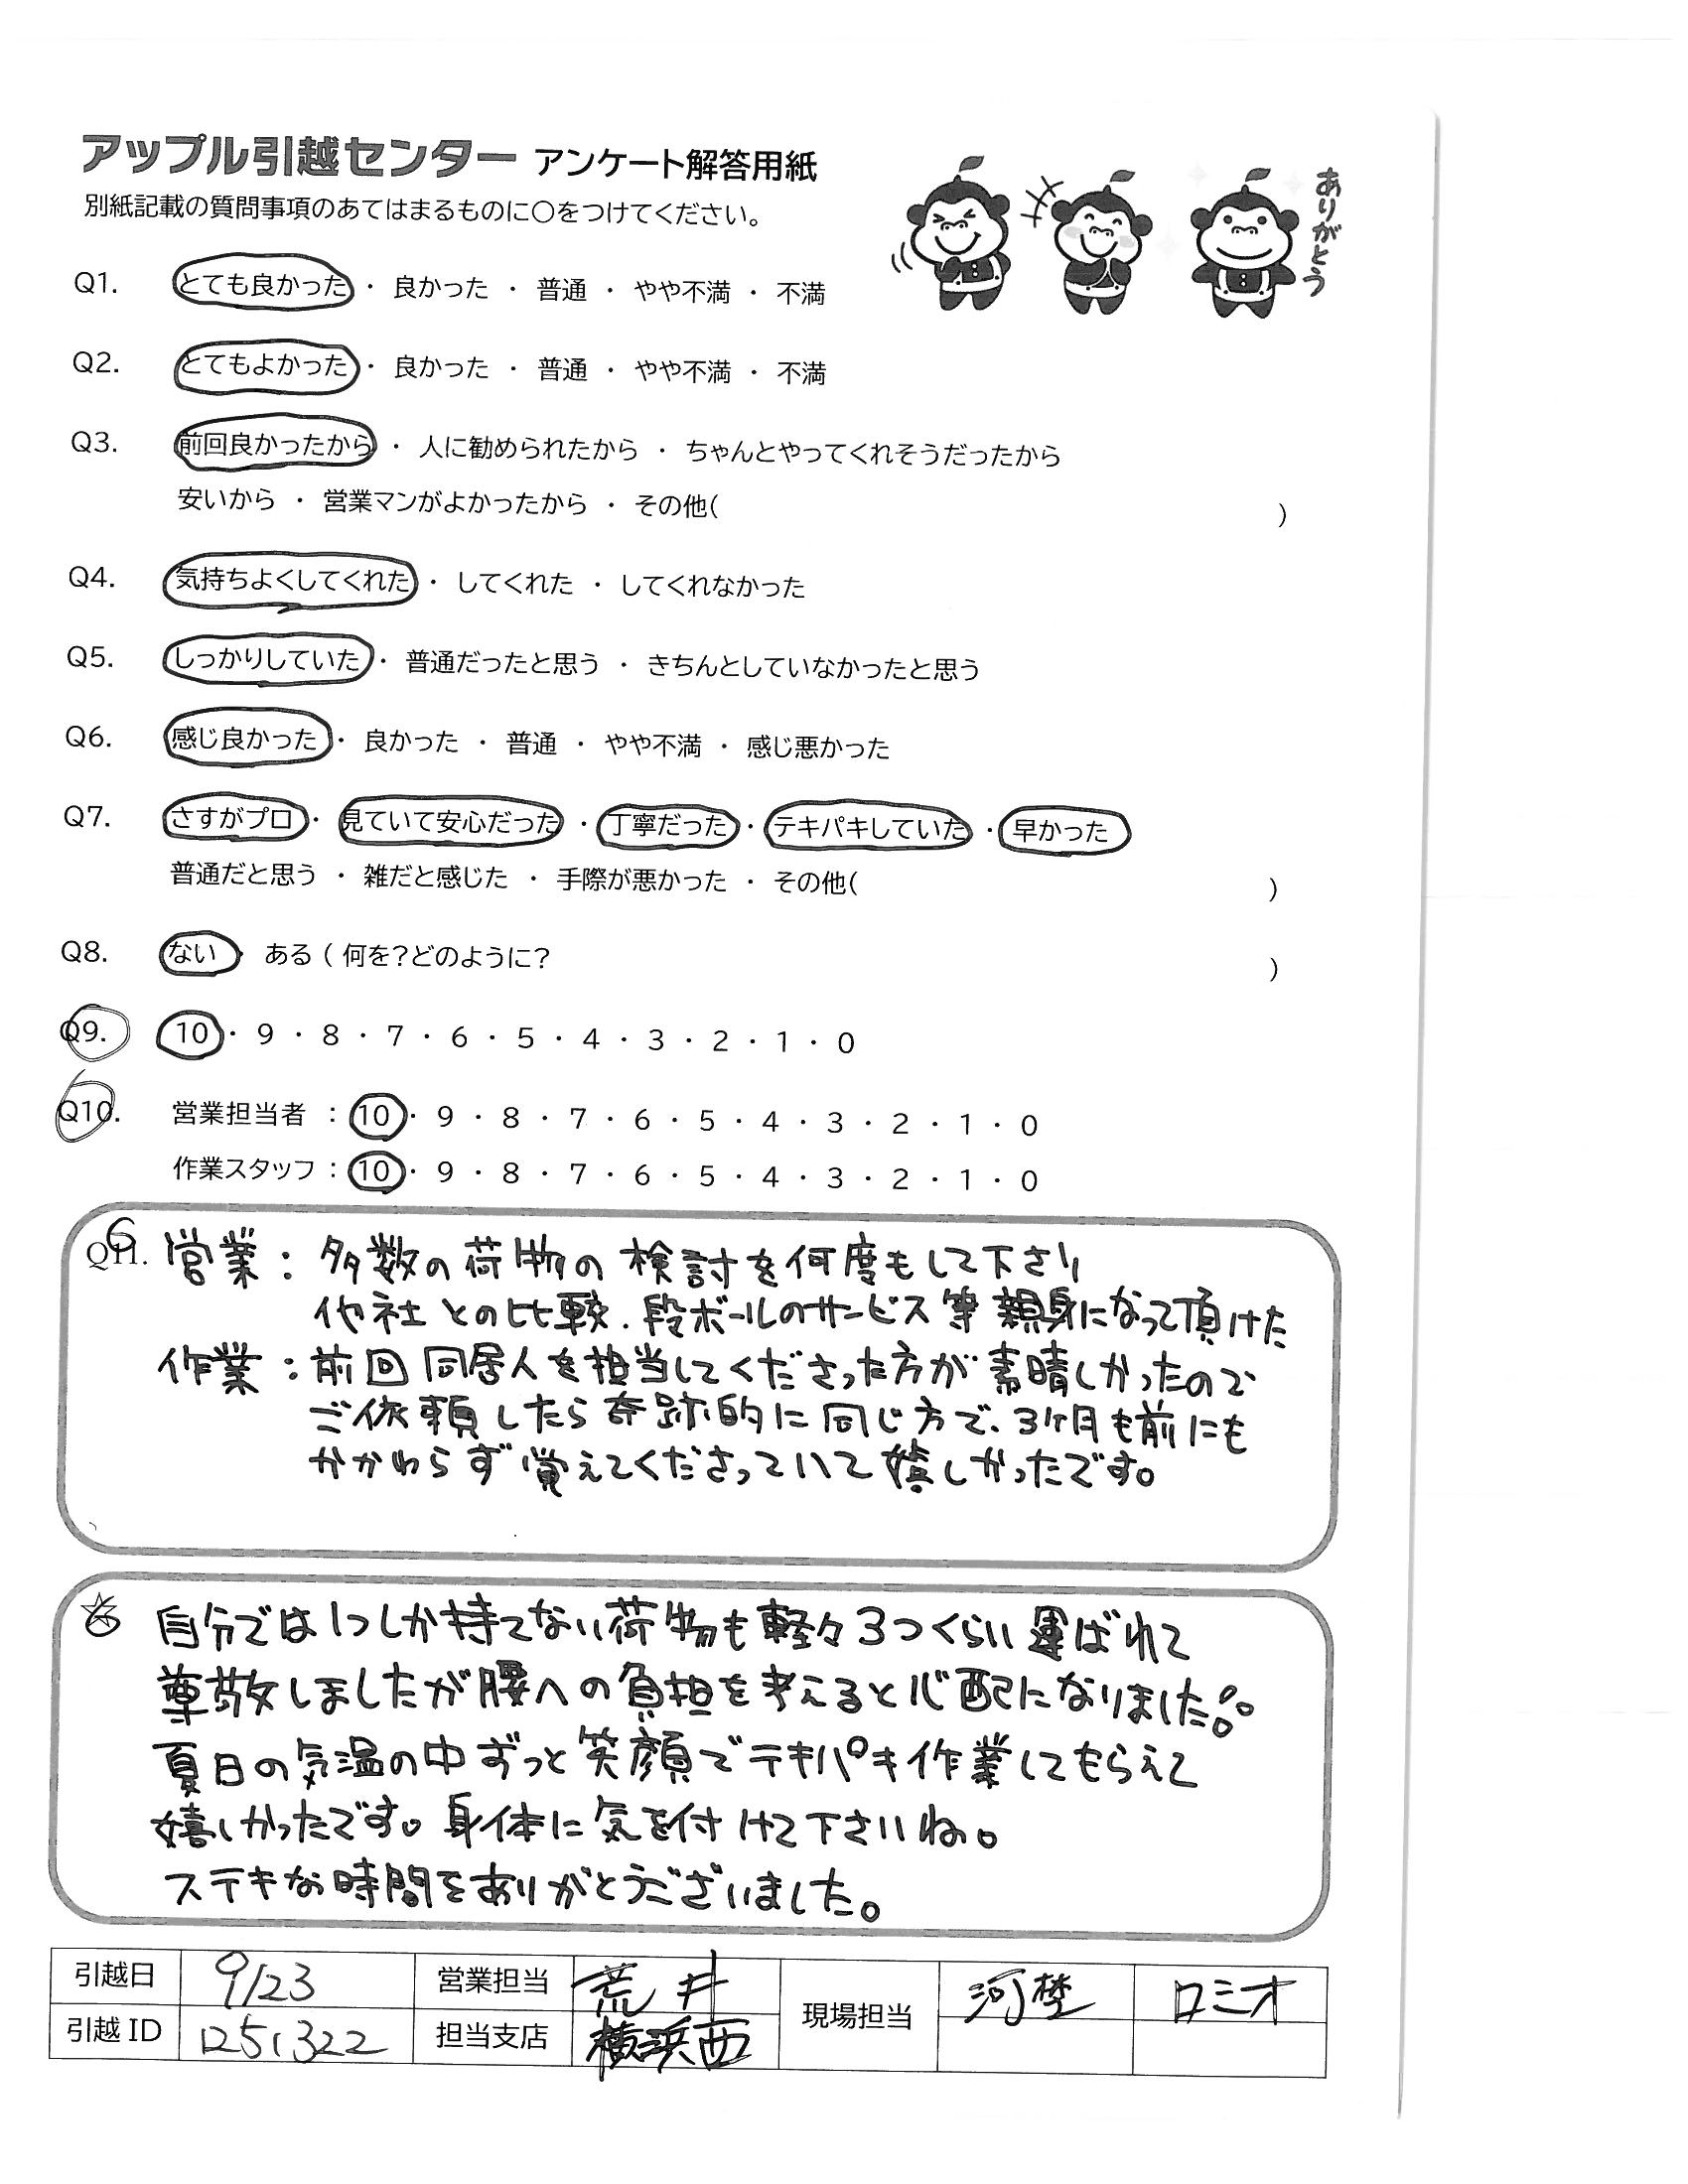 アップル引越センター アンケート解答用紙
別紙記載の質問事項のあてはまるものに○をつけてください。
ありがとう
Q1. とても良かった ・ 良かった ・ 普通 ・ やや不満 ・ 不満
Q2. とてもよかった ・ 良かった ・ 普通 ・ やや不満 ・ 不満
Q3. 前回良かったから ・ 人に勧められたから ・ ちゃんとやってくれそうだったから
安いから ・ 営業マンがよかったから ・ その他( )
Q4. 気持ちよくしてくれた ・ してくれた ・ してくれなかった
Q5. しっかりしていた ・ 普通だったと思う ・ きちんとしていなかったと思う
Q6. 感じ良かった ・ 良かった ・ 普通 ・ やや不満 ・ 感じ悪かった
Q7. さすがプロ ・ 見ていて安心だった ・ 丁寧だった ・ テキパキしていた ・ 早かった
普通だと思う ・ 雑だと感じた ・ 手際が悪かった ・ その他( )
Q8. ない ・ ある ( 何を?どのように? )
Q9. 10 ・ 9 ・ 8 ・ 7 ・ 6 ・ 5 ・ 4 ・ 3 ・ 2 ・ 1 ・ 0
Q10. 営業担当者 : 10 ・ 9 ・ 8 ・ 7 ・ 6 ・ 5 ・ 4 ・ 3 ・ 2 ・ 1 ・ 0
作業スタッフ : 10 ・ 9 ・ 8 ・ 7 ・ 6 ・ 5 ・ 4 ・ 3 ・ 2 ・ 1 ・ 0
Q11. 営業: 多数の荷物の検討を何度もして下さり
他社との比較、段ボールのサービス等親身になって頂けた
作業: 前回同居人を担当してくださった方が素晴しかったので
ご依頼したら奇跡的に同じ方で、3ヶ月も前にも
かかわらず覚えてくださっていて嬉しかったです。
☆ 自分では1つしか持てない荷物も軽々3つくらい運ばれて
尊敬しましたが腰への負担を考えると心配になりました
夏日の気温の中ずっと笑顔でテキパキ作業してもらえて
嬉しかったです。身体に気を付けて下さいね。
ステキな時間をありがとうございました。
引越日 9/23 営業担当 荒井 現場担当 ロミオ
引越ID 1251322 担当支店 横浜西